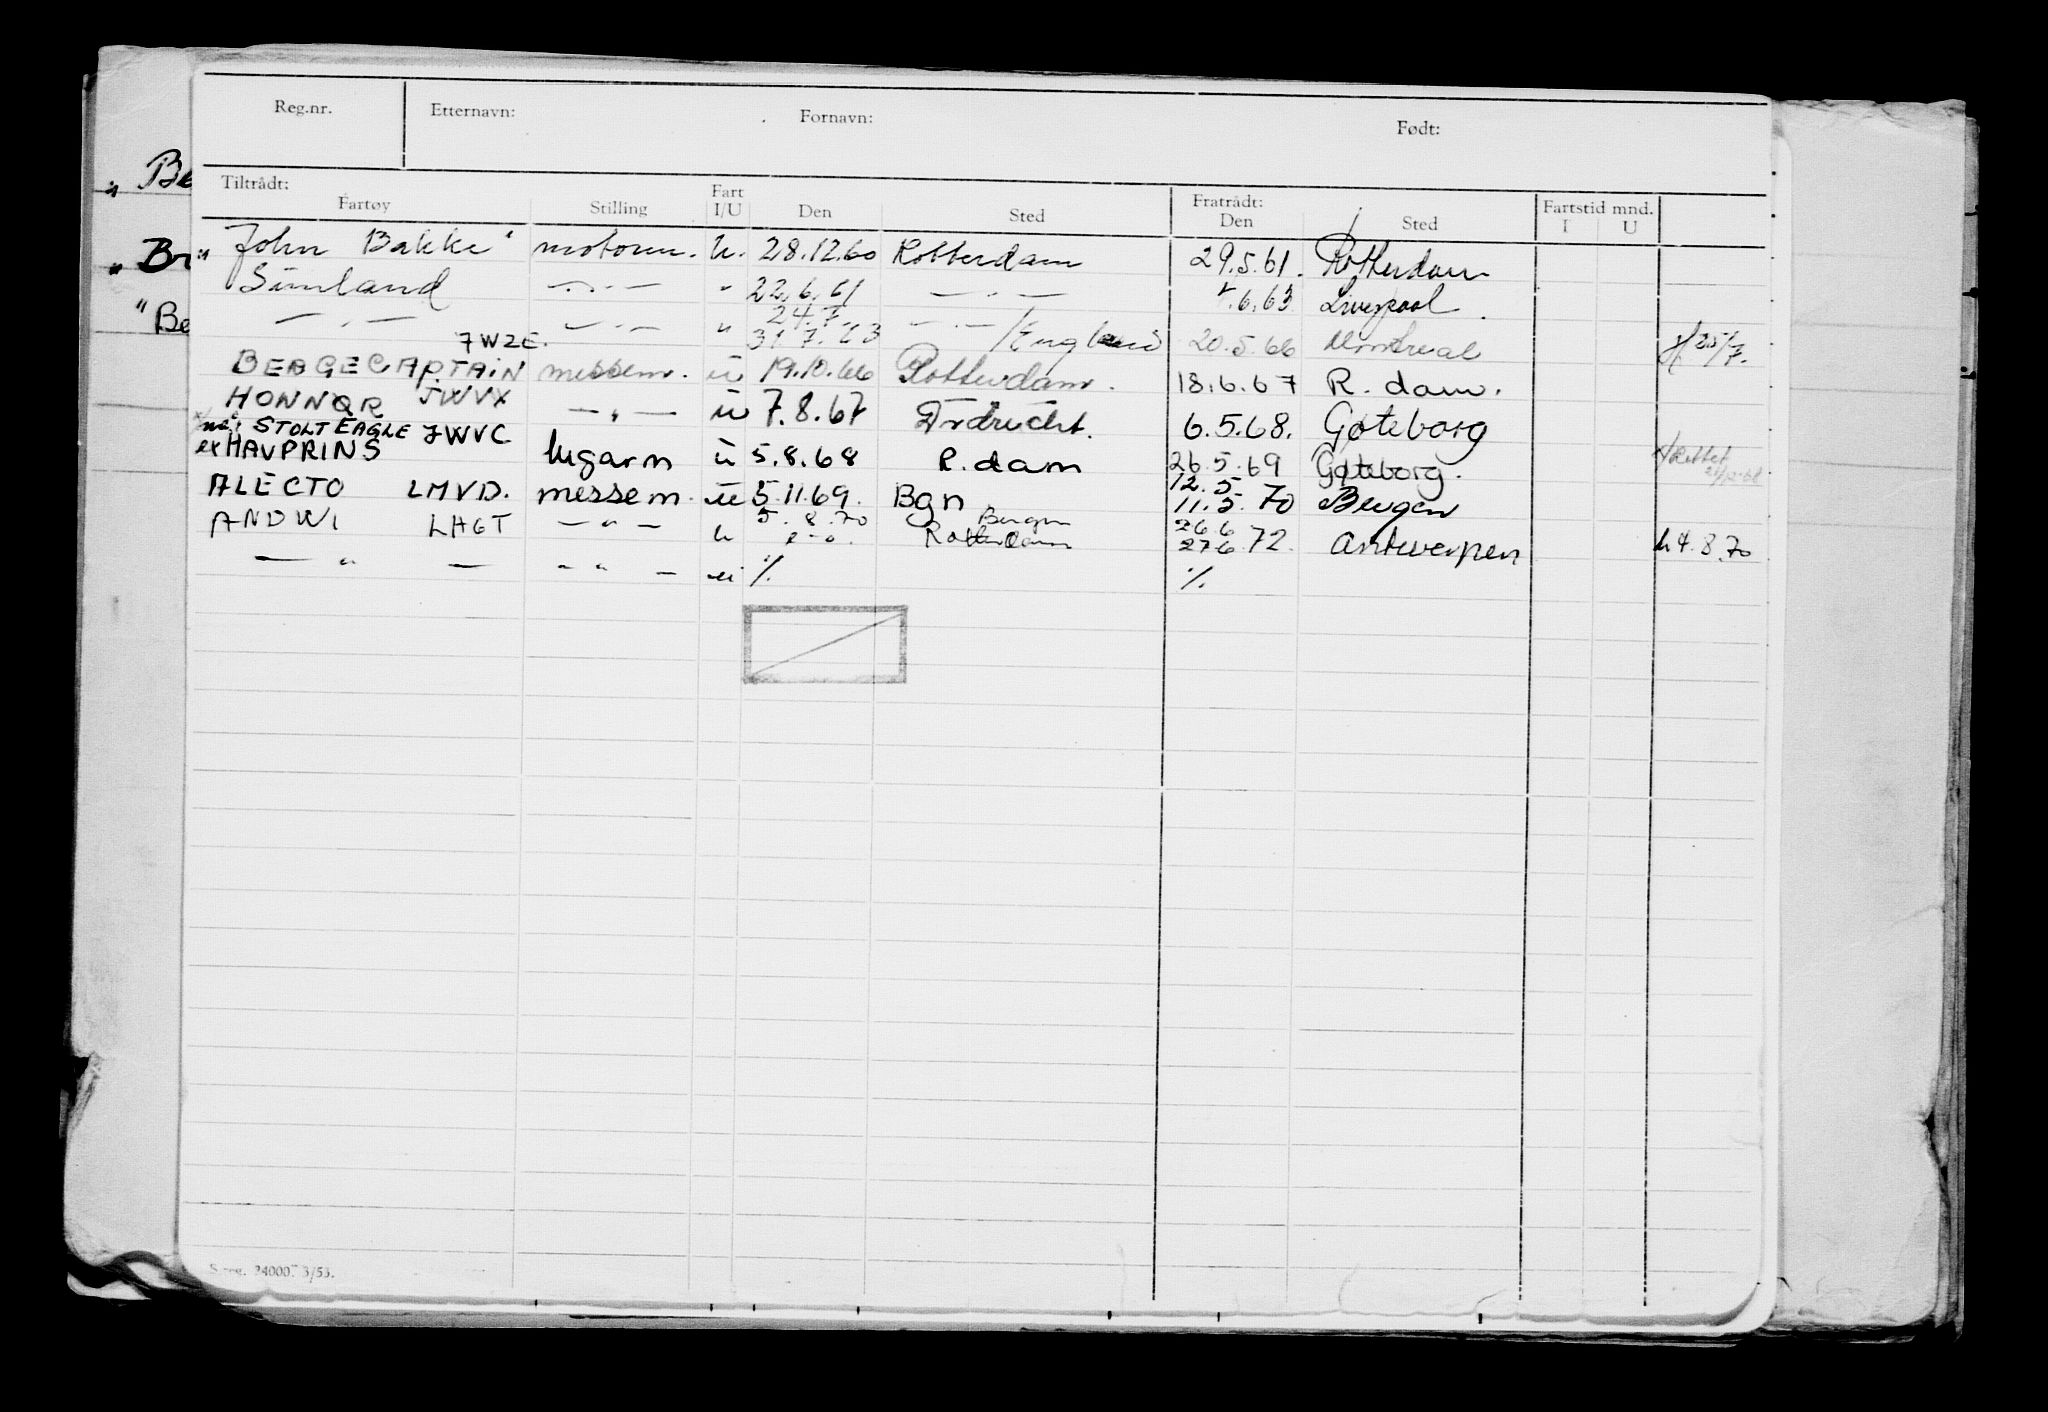 Reg.nr. Etternavn: Fornavn: Født:
Tiltrådt: Fratrådt: Fartstid mnd.
Fartøy Stilling Fart I/U Den Sted Den Sted I U
„ Be
„ Br
" Be
"John Bakke" motorm. u. 28.12.60 Rotterdam 29.5.61. Rotterdam
Simland —"— " 22.6.61 —"— .6.63 Liverpool
—"— —"— " 24.7. 31.7.63 —"—/England 20.5.66 Montreal 25/7.
JWZE.
BERGECAPTAIN messem. u 19.10.66 Rotterdam. 18.6.67 R.dam.
HONNØR JWVX —"— u 7.8.67 Dordrecht. 6.5.68. Gøteborg
nå STOLT EAGLE JWVC
ex HAVPRINS lugarm u 5.8.68 R.dam 26.5.69 Gøteborg. Rettet
ALECTO LMVD. messem. u 5.11.69. Bgn 12.5 11.5.70 Bergen
ANDWI LHGT —"— u 5.8.70 Bergen Rotterdam 26.6 27.6.72. Antwerpen 4.8.70
—"— —"— u ./. ./.
S-reg. 24000. 3/53.